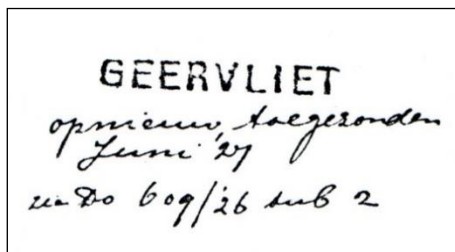 GEERVLIET
opnieuw toegezonden
Juni '27
zie Do 609/'26 sub 2